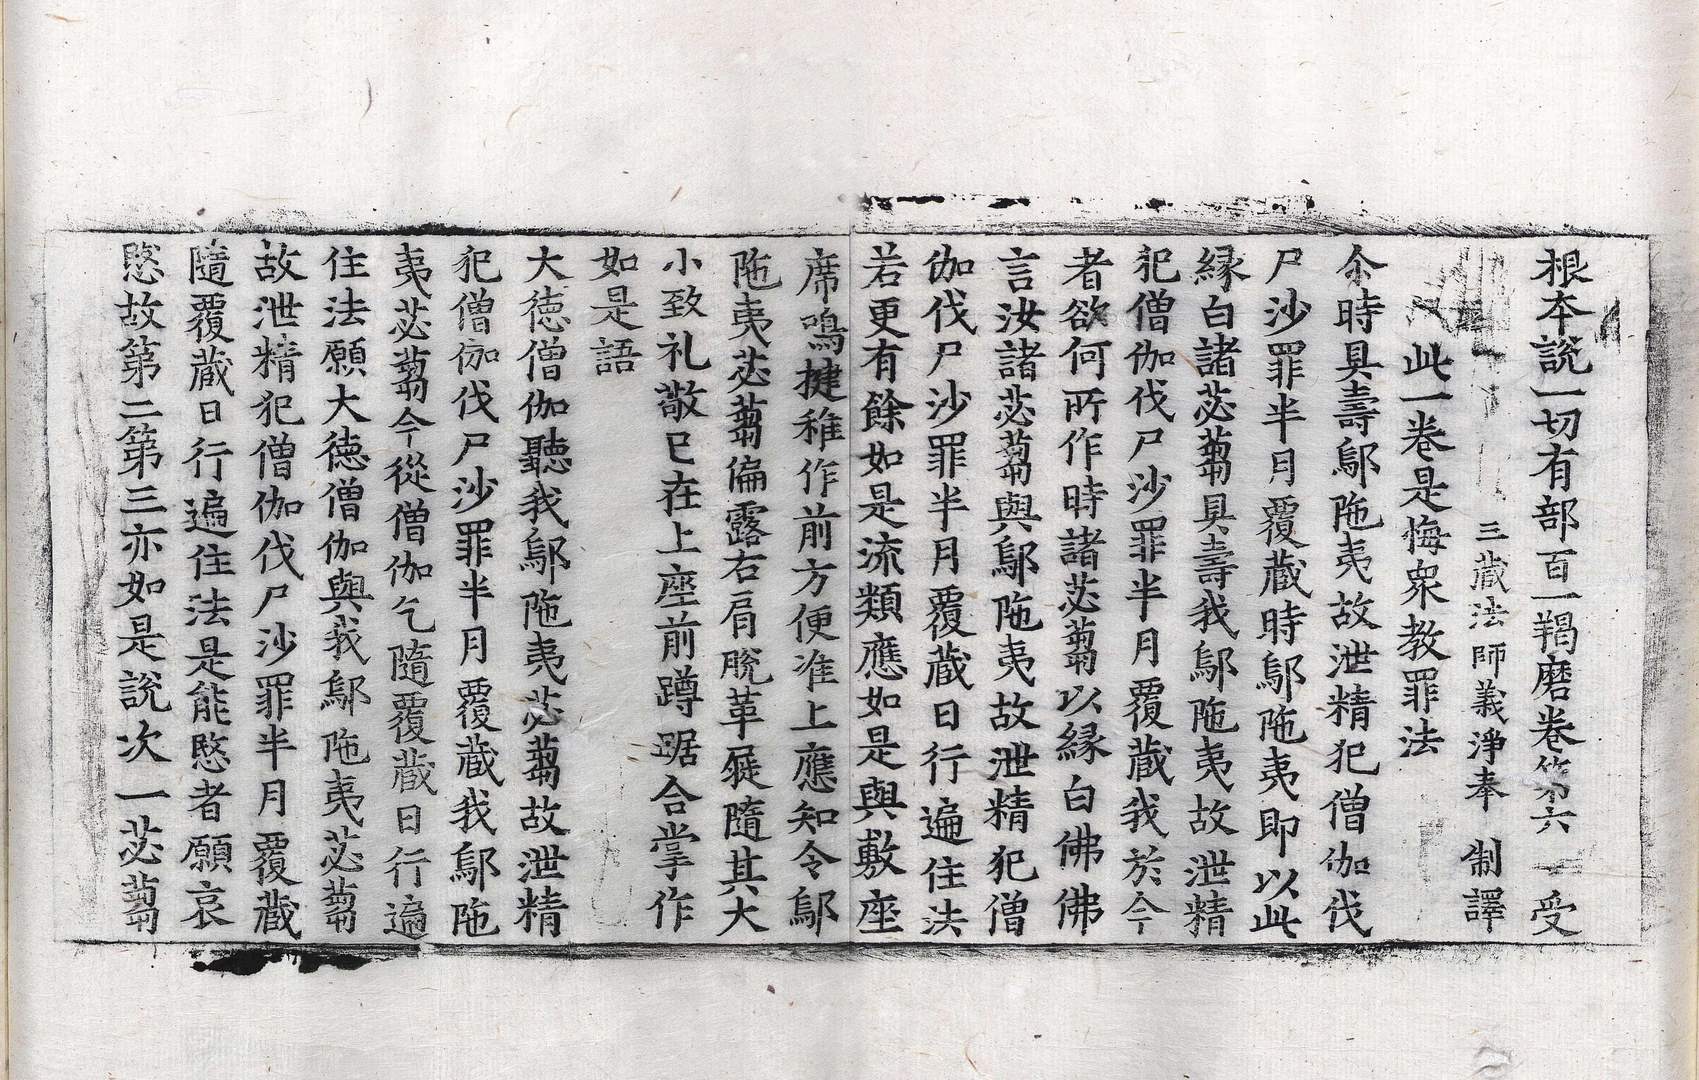 根本說一切有部百一羯磨卷第六 受
三藏法師義淨奉 制譯
此一卷是悔衆教罪法
尒時具壽鄔陁夷故泄精犯僧伽伐
尸沙罪半月覆藏時鄔陁夷即以此
縁白諸苾蒭具壽我鄔陁夷故泄精
犯僧伽伐尸沙罪半月覆藏我於今
者欲何所作時諸苾蒭以縁白佛佛
言汝諸苾蒭與鄔陁夷故泄精犯僧
伽伐尸沙罪半月覆藏日行遍住法
若更有餘如是流類應如是與敷座
席鳴揵稚作前方便准上應知令鄔
陁夷苾蒭偏露右肩脫革屣隨其大
小致礼敬已在上座前蹲踞合掌作
如是語
大德僧伽聽我鄔陁夷苾蒭故泄精
犯僧伽伐尸沙罪半月覆藏我鄔陁
夷苾蒭今從僧伽乞隨覆藏日行遍
住法願大德僧伽與我鄔陁夷苾蒭
故泄精犯僧伽伐尸沙罪半月覆藏
隨覆藏日行遍住法是能愍者願哀
愍故第二第三亦如是說次一苾蒭